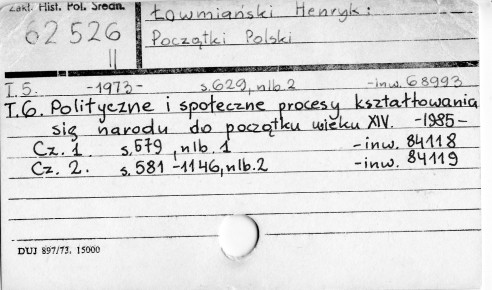 Zakł. Hist. Pol. Średn.
Łowmiański Henryk:
02526
II
Początki Polski
T.5. -1973- s.629, nlb.2 -inw. 68993
T.6. Polityczne i społeczne procesy kształtowania
się narodu do początku wieku XIV. -1985-
Cz. 1. s.579, nlb. 1 -inw. 84118
Cz. 2. s.581-1146, nlb.2 -inw. 84119
DUJ 897/73. 15000